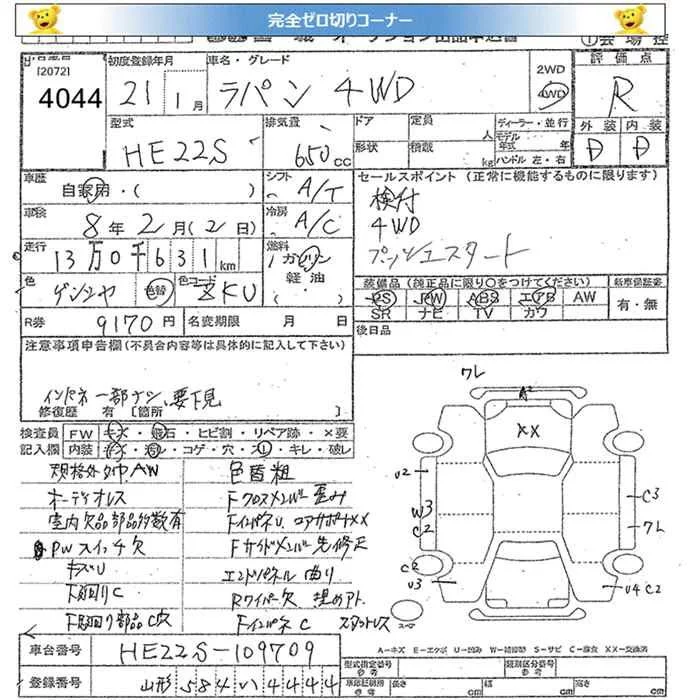 完全ゼロ切りコーナー
[2072]
4044
初度登録年月
21 1月
車名・グレード
ラパン 4WD
2WD
4WD
評価点
R
外装 内装
D D
型式
HE22S
排気量
650cc
ドア 定員 人
形状 積載 kg
ディーラー・並行
モデル年式 年
ハンドル 左・右
車歴
自家用・( )
シフト
A/T
セールスポイント (正常に機能するものに限ります)
検付
4WD
プッシュスタート
車検
8年2月(2日)
冷房
A/C
走行
13万0千631km
燃料
ガソリン
軽油
( ・ )
色
ゲンシャ
色替
色コード
ZKU
装備品 (純正品に限り○をつけてください)
PS PW ABS エアB AW
SR ナビ TV カワ
新車保証書
有・無
R券 9170円
名変期限 月 日
後日品
注意事項申告欄(不具合内容等は具体的に記入して下さい)
インパネ一部ナシ、要下見
修復歴 有 [箇所 ]
検査員 FW キズ・飛石・ヒビ割・リペア跡・×要
記入欄 内装 キズ・汚レ・コゲ・穴・スレ・キレ・破レ
規格外タイヤAW
オーディオレス
室内欠品部品多数有
PWスイッチ欠
キズU
下廻りC
下廻り部品C欠
色替粗
Fクロスメンバー歪み
FインパネU、コアサポートXX
Fサイドメンバー先修正
エンドパネル曲り
Rワイパー欠 埋めアト
FインパネC スタットレス
ワレ
A2
XX
U2
W3
C2
C2
U3
C3
ワレ
U4 C2
スペア
A-キズ E-エクボ U-凹み W-補修跡 S-サビ C-腐食 XX-交換済
車台番号 HE22S-109709
登録番号 山形 584 い 4444
型式指定番号
参考
類別区分番号
参考
車庫証明所
参考
長さ cm
幅 cm
高さ cm